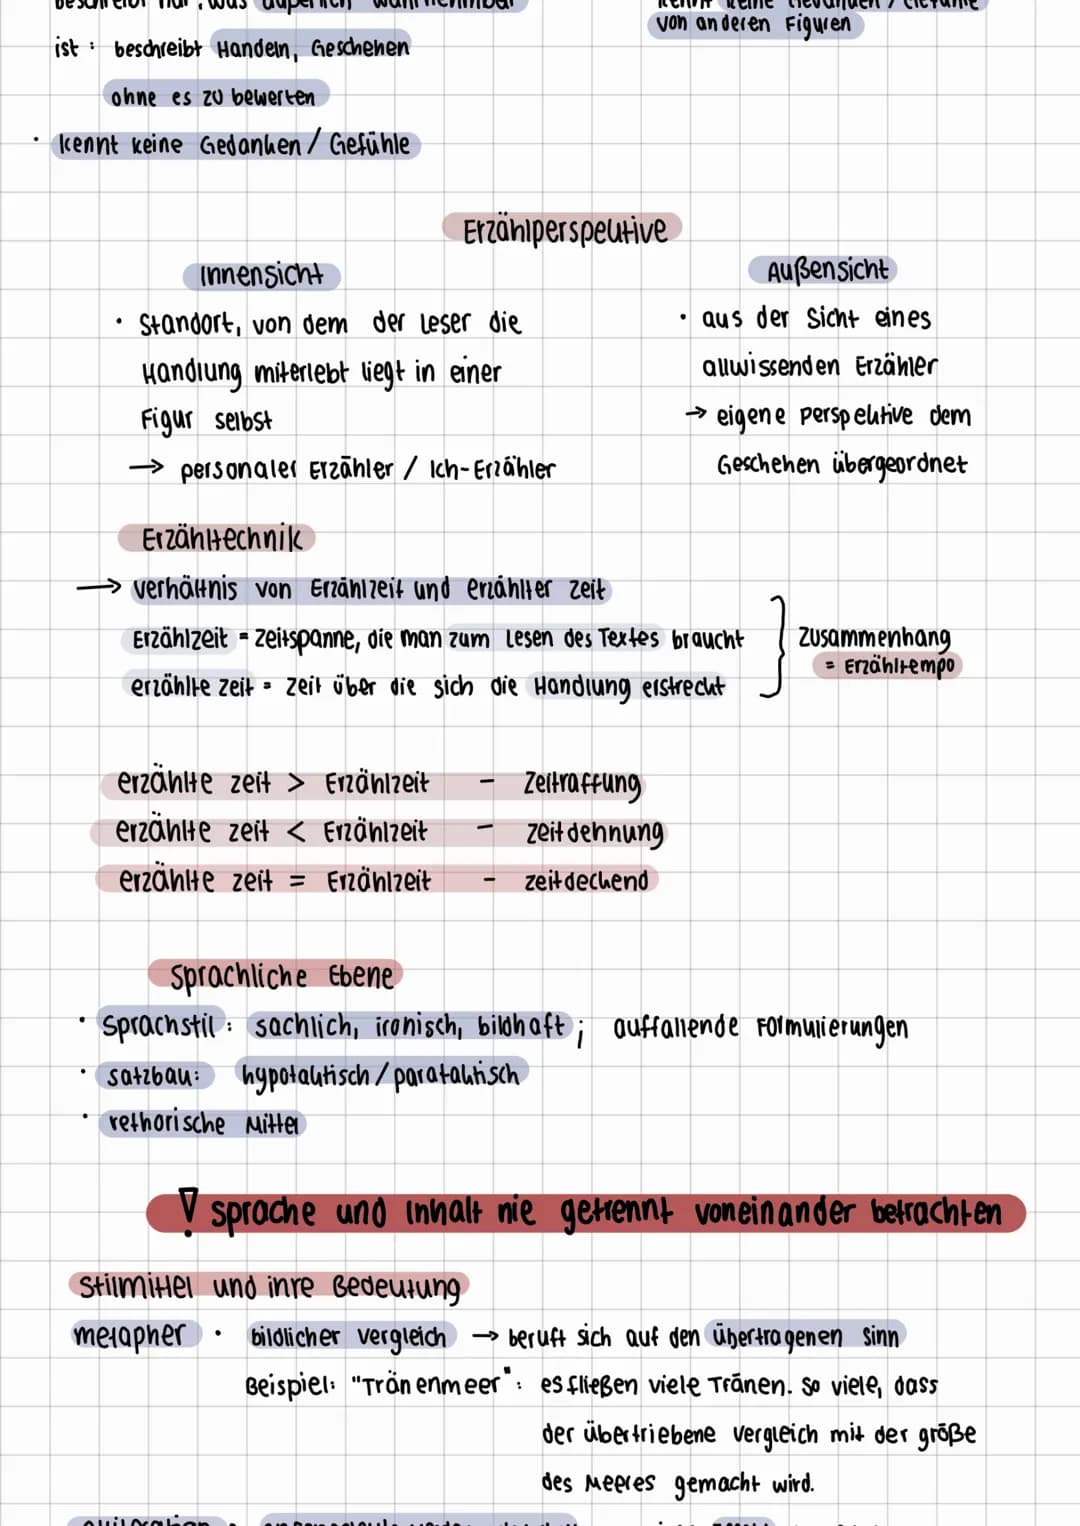 beschreibt nur, was äußerlich wahrnehmbar
ist : beschreibt Handeln, Geschehen
ohne es zu bewerten
· kennt keine Gedanken / Gefühle
kennt keine Gedanken / Gefühle
von anderen Figuren
Erzählperspektive
Innensicht
· Standort, von dem der Leser die
Handlung miterlebt liegt in einer
Figur selbst
→ personaler Erzähler / Ich-Erzähler
Außensicht
· aus der Sicht eines
allwissenden Erzähler
→ eigene Perspektive dem
Geschehen übergeordnet
Erzähltechnik
→ Verhältnis von Erzählzeit und erzählter Zeit
Erzählzeit = Zeitspanne, die man zum Lesen des Textes braucht
erzählte Zeit = Zeit über die sich die Handlung erstreckt
Zusammenhang
= Erzähltempo
erzählte Zeit > Erzählzeit - Zeitraffung
erzählte Zeit < Erzählzeit - Zeitdehnung
erzählte Zeit = Erzählzeit - zeitdeckend
Sprachliche Ebene
· Sprachstil: sachlich, ironisch, bildhaft; auffallende Formulierungen
· Satzbau: hypotaktisch / parataktisch
· rethorische Mittel
! Sprache und Inhalt nie getrennt voneinander betrachten
Stilmittel und ihre Bedeutung
Metapher · bildlicher Vergleich → beruft sich auf den übertragenen Sinn
Beispiel: "Tränenmeer": es fließen viele Tränen. So viele, dass
der übertriebene Vergleich mit der größe
des Meeres gemacht wird.